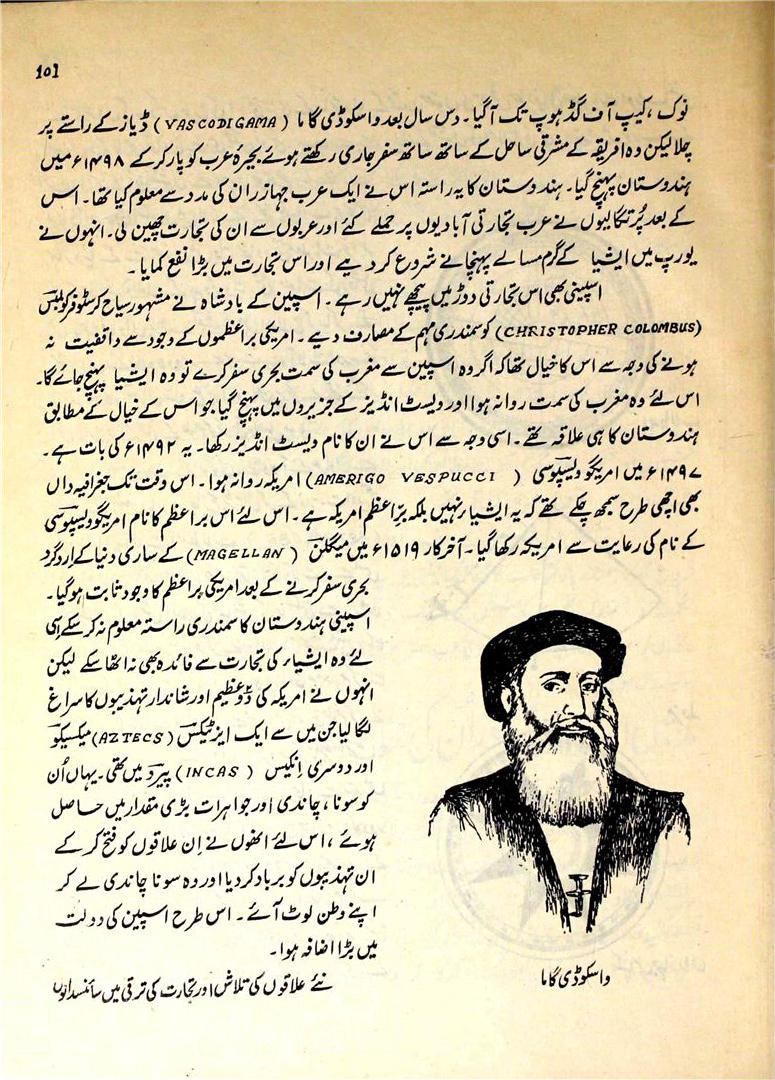 101
نوک، کیپ آف گڈ ہوپ تک آگیا۔ دس سال بعد واسکوڈی گاما (VASCODIGAMA) ڈیاز کے راستے پر
چلا لیکن وہ افریقہ کے مشرقی ساحل کے ساتھ ساتھ سفر جاری رکھتے ہوئے بحیرۂ عرب کو پار کر کے ۱۴۹۸ء میں
ہندوستان پہنچ گیا۔ ہندوستان کا یہ راستہ اس نے ایک عرب جہاز ران کی مدد سے معلوم کیا تھا۔ اس
کے بعد پُرتگالیوں نے عرب تجارتی آبادیوں پر حملے کئے اور عربوں سے ان کی تجارت چھین لی۔ انہوں نے
یورپ میں ایشیا کے گرم مسالے پہنچانے شروع کر دیے اور اس تجارت میں بڑا نفع کمایا۔
اسپینی بھی اس تجارتی دوڑ میں پیچھے نہیں رہے۔ اسپین کے بادشاہ نے مشہور سیاح کرسٹوفر کولمبس
(CHRISTOPHER COLOMBUS) کو سمندری مہم کے مصارف دیے۔ امریکی براعظموں کے وجود سے واقفیت نہ
ہونے کی وجہ سے اس کا خیال تھا کہ اگر وہ اسپین سے مغرب کی سمت بحری سفر کرے تو وہ ایشیا پہنچ جائے گا۔
اس لئے وہ مغرب کی سمت روانہ ہوا اور ویسٹ انڈیز کے جزیروں میں پہنچ گیا جو اس کے خیال کے مطابق
ہندوستان کا ہی علاقہ تھے۔ اسی وجہ سے اس نے ان کا نام ویسٹ انڈیز رکھا۔ یہ ۱۴۹۲ء کی بات ہے۔
۱۴۹۷ء میں امریگو ویسپوسی (AMERIGO VESPUCCI) امریکہ روانہ ہوا۔ اس وقت تک جغرافیہ داں
بھی اچھی طرح سمجھ چکے تھے کہ یہ ایشیا نہیں بلکہ برّاعظم امریکہ ہے۔ اس لئے اس براعظم کا نام امریگو ویسپوسی
کے نام کی رعایت سے امریکہ رکھا گیا۔ آخر کار ۱۵۱۹ء میں میگلن (MAGELLAN) کے ساری دنیا کے اردگرد
بحری سفر کرنے کے بعد امریکی براعظم کا وجود ثابت ہو گیا۔
اسپینی ہندوستان کا سمندری راستہ معلوم نہ کر سکے اسی
لئے وہ ایشیاء کی تجارت سے فائدہ بھی نہ اٹھا سکے لیکن
انہوں نے امریکہ کی دو عظیم اور شاندار تہذیبوں کا سراغ
لگا لیا جن میں سے ایک ایزٹیکس (AZTECS) میکسیکو
اور دوسری انکیس (INCAS) پیرو میں تھی۔ یہاں اُن
کو سونا، چاندی اور جواہرات بڑی مقدار میں حاصل
ہوئے، اس لئے انھوں نے اِن علاقوں کو فتح کر کے
ان تہذیبوں کو برباد کر دیا اور وہ سونا چاندی لے کر
اپنے وطن لوٹ آئے۔ اس طرح اسپین کی دولت
میں بڑا اضافہ ہوا۔
نئے علاقوں کی تلاش اور تجارت کی ترقی میں سائنسدانوں
واسکوڈی گاما